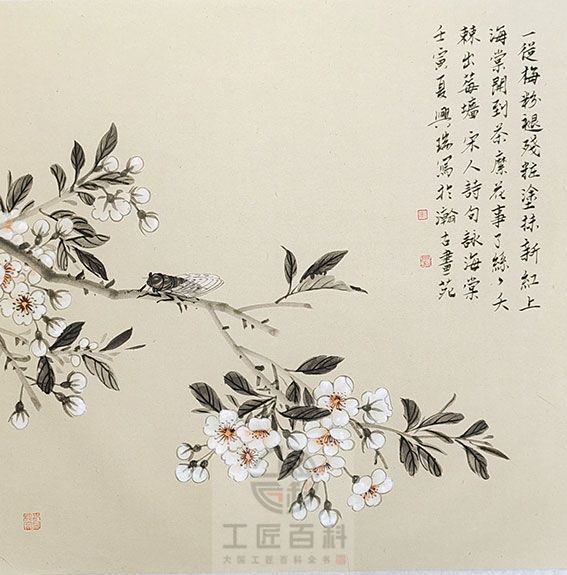 一從梅粉褪殘粧塗抹新紅上
海棠開到茶糜花事了絲〻夭
棘出莓墻 宋人詩句詠海棠
壬寅夏興瑞寫於瀚古畫苑
工匠百科
大国工匠百科全书